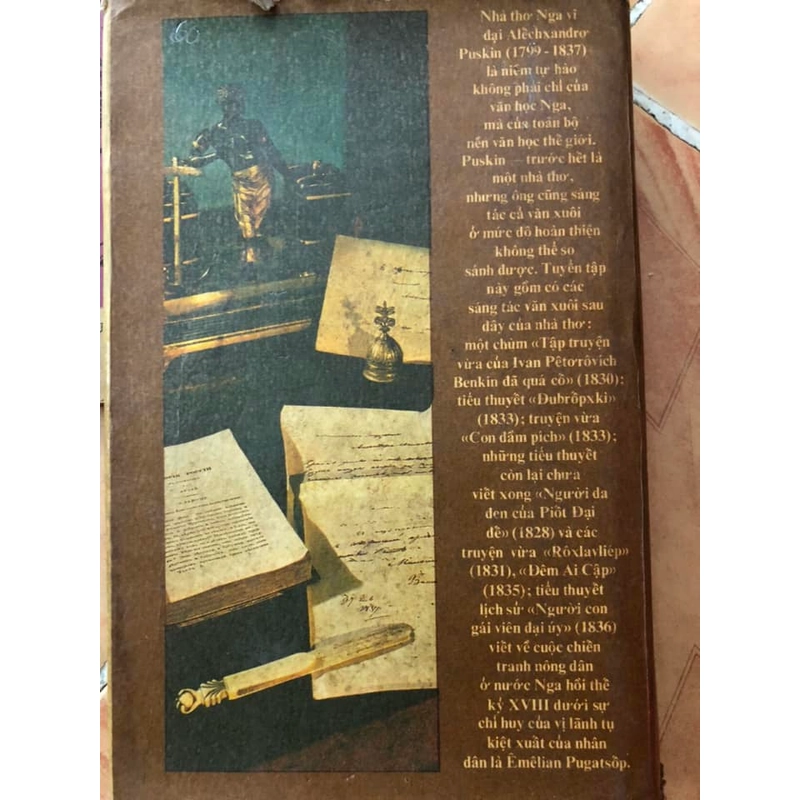 60
Nhà thơ Nga vĩ
đại Alếchxanđrơ
Puskin (1799-1837)
là niềm tự hào
không phải chỉ của
văn học Nga,
mà của toàn bộ
nền văn học thế giới.
Puskin — trước hết là
một nhà thơ,
nhưng ông cũng sáng
tác cả văn xuôi
ở mức độ hoàn thiện
không thể so
sánh được. Tuyển tập
này gồm có các
sáng tác văn xuôi sau
đây của nhà thơ:
một chùm «Tập truyện
vừa của Ivan Pêtơrôvich
Benkin đã quá cố» (1830);
tiểu thuyết «Đubrốpxki»
(1833); truyện vừa
«Con đầm pich» (1833);
những tiểu thuyết
còn lại chưa
viết xong «Người da
đen của Piốt Đại
đế» (1828) và các
truyện vừa «Rôxlavliép»
(1831), «Đêm Ai Cập»
(1835); tiểu thuyết
lịch sử «Người con
gái viên đại úy» (1836)
viết về cuộc chiến
tranh nông dân
ở nước Nga hồi thế
kỷ XVIII dưới sự
chỉ huy của vị lãnh tụ
kiệt xuất của nhân
dân là Êmêlian Pugatsốp.